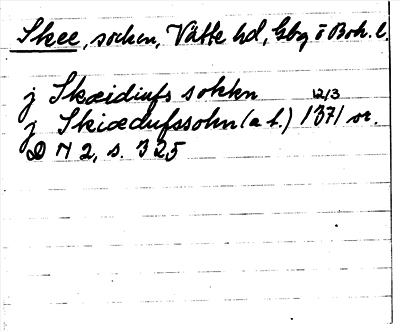 Skee, socken, Vätte hd, Gbg o Boh. l.
j Skæidiufs sokkn 12/3
j Skiædufssokn (a t.) 1371 or.
D N 2, s. 325